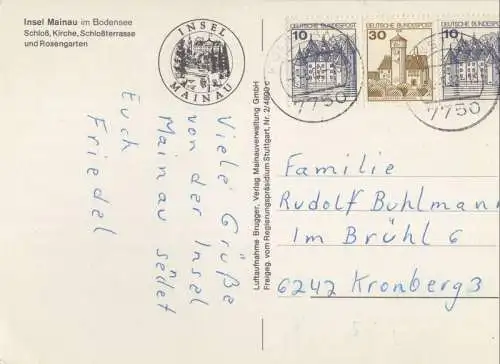 Insel Mainau im Bodensee
Schloß, Kirche, Schloßterrasse
und Rosengarten
INSEL
MAINAU
Viele Grüße
von der Insel
Mainau sendet
Euch
Friedel
Luftaufnahme Brugger, Verlag Mainauverwaltung GmbH
Freigeg. vom Regierungspräsidium Stuttgart, Nr. 2/4690 c
10 DEUTSCHE BUNDESPOST
30 DEUTSCHE BUNDESPOST
10 DEUTSCHE BUNDESPOST
7750
7750
Familie
Rudolf Buhlmann
Im Brühl 6
6242 Kronberg 3